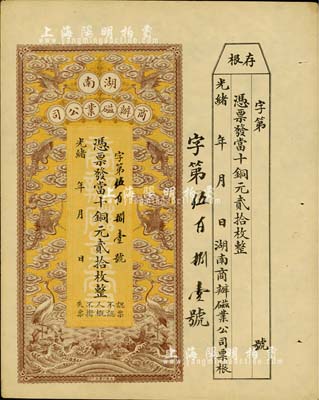 上海陽明拍賣
湖南
商辦磁業公司
字第伍百捌壹號
憑票發當十銅元貳拾枚整
光緒 年 月 日
認票不認人
概不掛失票
字第伍百捌壹號
存根
字第 號
憑票發當十銅元貳拾枚整
光緒 年 月 日湖南商辦磁業公司票根